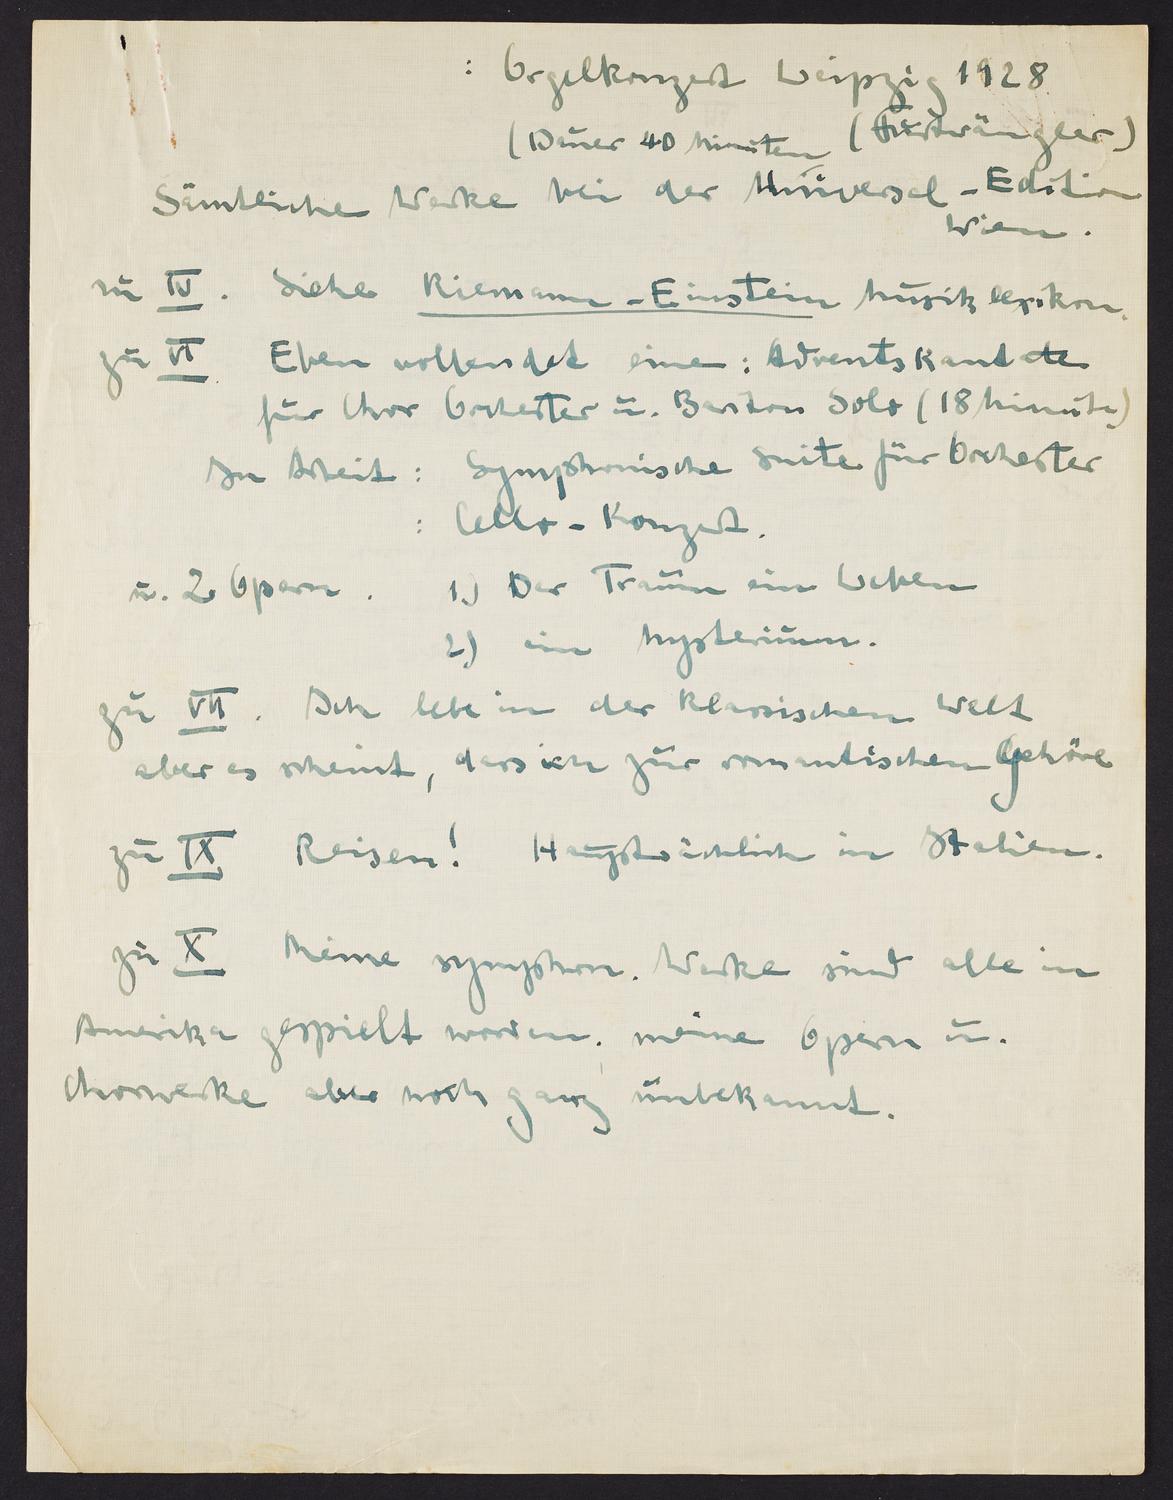 : Orgelkonzert Leipzig 1928
(Dauer 40 Minuten (Furtwängler)
Sämtliche Werke bei der Universal-Edition
Wien.
zu IV. Siehe Riemann-Einstein Musiklexikon.
zu VI. Eben vollendet eine: Adventskantate
für Chor Orchester u. Bariton Solo (18 Minuten)
In Arbeit: Symphonische Suite für Orchester
: Cello-Konzert.
u. 2 Opern. 1.) Der Traum ein Leben
2.) ein Mysterium.
zu VII. Ich lebe in der klassischen Welt
aber es scheint, dass ich zur romantischen Gehöre
zu IX Reisen! Hauptsächlich in Italien.
zu X Meine symphon. Werke sind alle in
Amerika gespielt worden, meine Opern u.
Chorwerke aber noch ganz unbekannt.